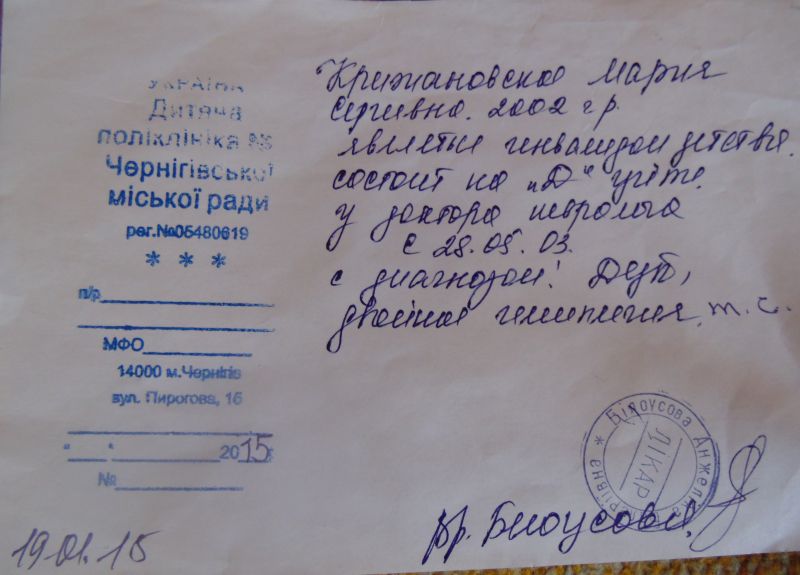 УКРАЇНА
Дитяча
поліклініка №
Чернігівської
міської ради
рег.№05480619
* * *
п/р
МФО
14000 м.Чернігів
вул. Пирогова, 16
"   " 2015
№
19.01.15
Крижановская Мария
2002 г.р.
является инвалидом детства.
состоит на "Д" учёте
у доктора невролога
с 28.05.03.
с диагнозом: ДЦП,
двойная гемиплегия, т. ч.
* Білоусова Анжела
ЛІКАР
Вр. Белоусова